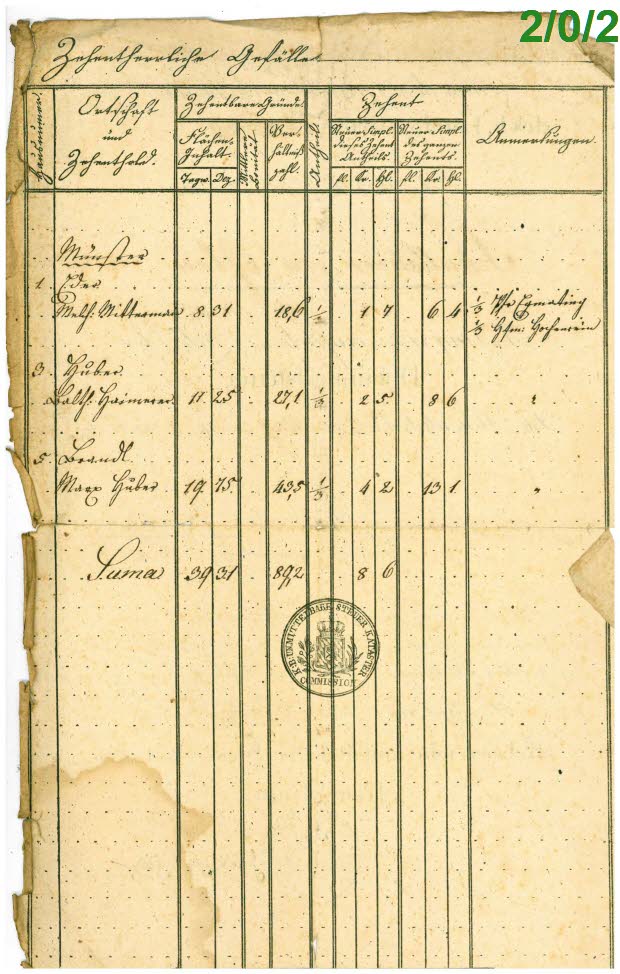 2/0/2
Zehentherrliche Gefälle
Hausnummer.
Ortschaft
und
Zehenthold.
Zehentbare Gründe
Flächen-
Inhalt.
Tagw. Dez.
Mittlere
Bonität.
Ver-
hältniß
zahl.
Antheil.
Zehent
Steuer Simpl.
dieses Zehent
Antheils.
fl. Kr. hl.
Steuer Simpl.
des ganzen
Zehents.
fl. Kr. hl.
Anmerkungen.
Münster
1. Eder
Melch. Mittermair 8. 31 18,6 1/3 1 7 6 4 1/3 Pfr Egmating
1/3 Hohenrain
3. Huber
Balth. Haimerer 11 25 27,1 1/3 2 5 8 6 "
5. Brandl
Marx Huber 19. 75. 43,5 1/3 4 2 13 1 "
Suma 39 31 89,2 8 6
K. B. UNMITTELBARE STEUER KATASTER
COMMISSION